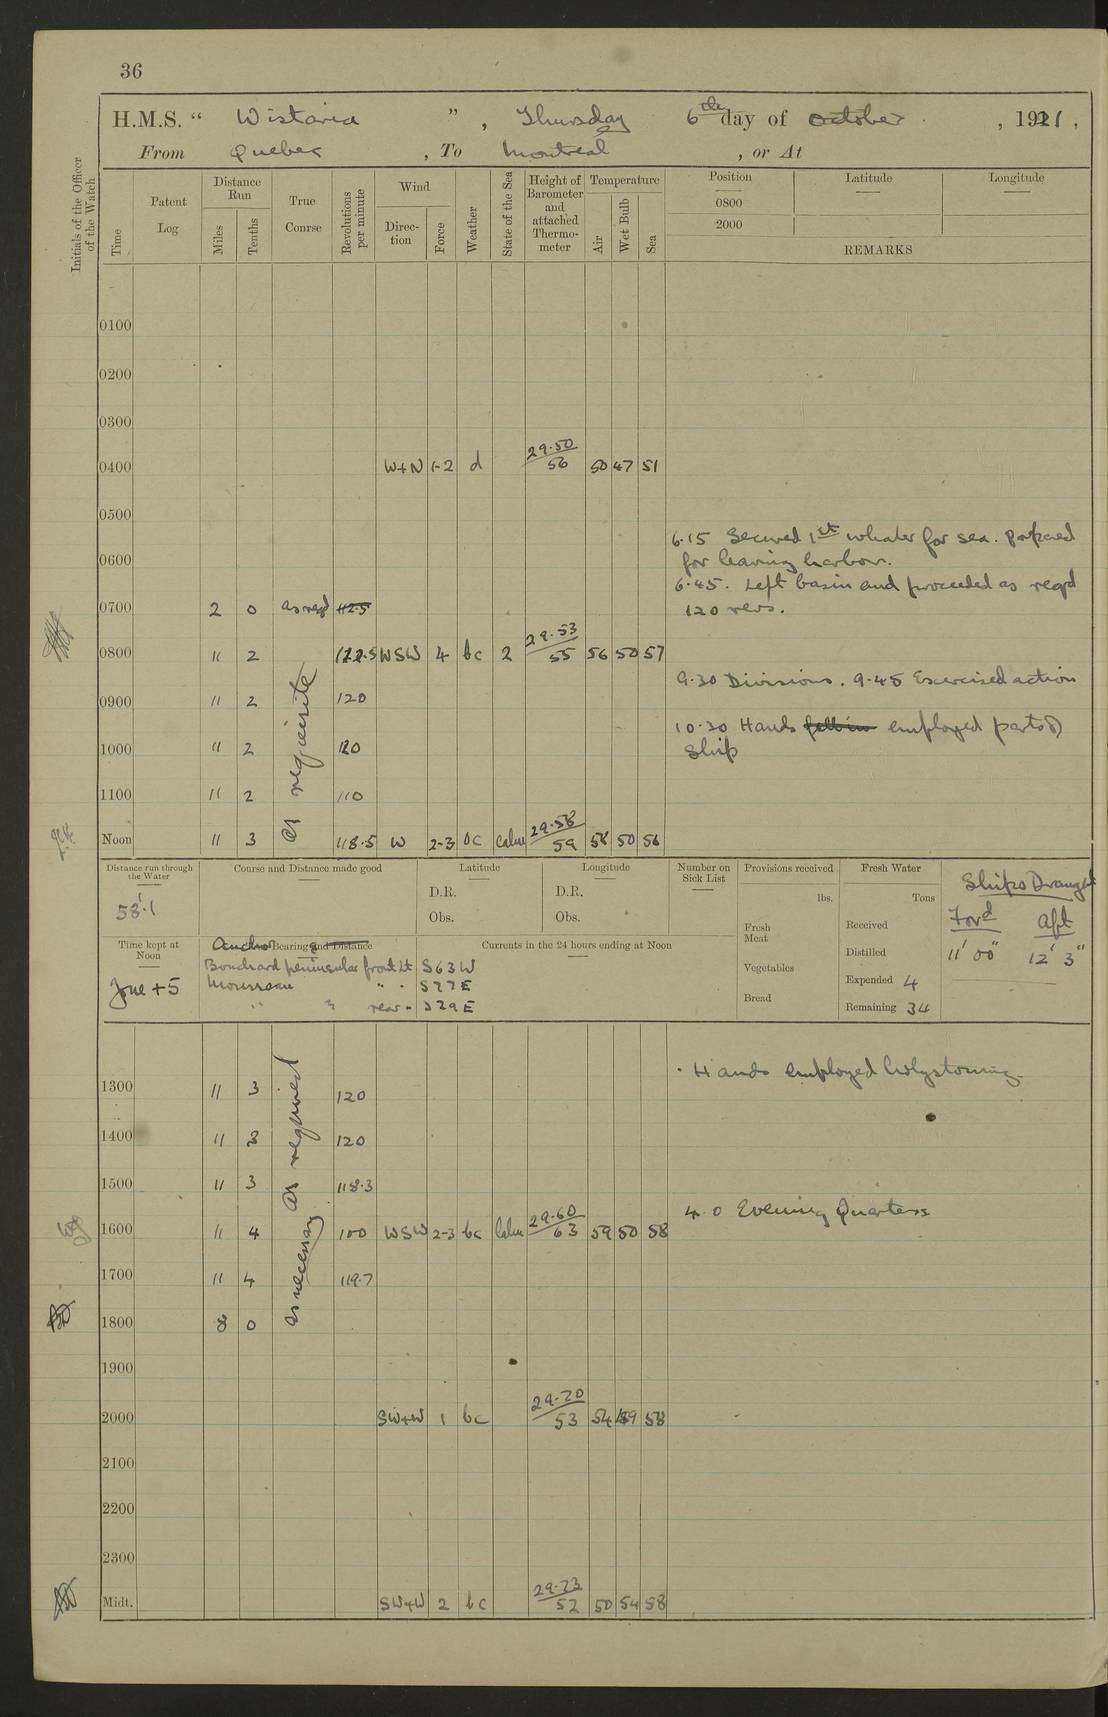 36
H.M.S. " Wistaria ", Thursday 6th day of October, 1921.
From Quebec, To Montreal, or At
Initials of the Officer of the Watch
Time
Patent Log
Distance Run
Miles
Tenths
True Course
Revolutions per minute
Wind
Direction
Force
Weather
State of the Sea
Height of Barometer and attached Thermometer
Temperature
Air
Wet Bulb
Sea
Position
Latitude
Longitude
0800
2000
REMARKS
0100
0200
0300
0400 W+N 1-2 d 29.50 56 50 47 51
0500
6.15 Secured 1st whaler for sea. Prepared
0600 for leaving harbour.
6.45. Left basin and proceeded as reqd
0700 2 0 as reqd 112.5 120 revs.
0800 11 2 122.5 WSW 4 bc 2 29.53 55 56 50 57
9.30 Divisions. 9.45 Exercised action
0900 11 2 as requisite 120
10.30 Hands fell in employed parts of
1000 11 2 120 Ship
1100 11 2 110
Noon 11 3 118.5 W 2-3 bc Calm 29.58 59 58 50 56
Distance run through the Water
53'.1
Course and Distance made good
Latitude
D.R.
Obs.
Longitude
D.R.
Obs.
Number on Sick List
Provisions received
lbs.
Fresh Meat
Vegetables
Bread
Fresh Water
Tons
Received
Distilled
Expended 4
Remaining 34
Ships Draught
Ford Aft
11' 00" 12' 3"
Time kept at Noon
Zone +5
Anchor Bearings and Distance
Bouchard peninsular front Lt S63W
Mousseau " " S77E
" " rear " S29E
Currents in the 24 hours ending at Noon
Hands employed holystoning.
1300 11 3 as required 120
1400 11 3 120
1500 11 3 118.3
4.0 Evening Quarters
1600 11 4 as necessary 100 WSW 2-3 bc Calm 29.60 63 59 50 58
1700 11 4 119.7
1800 8 0
1900
2000 SW+W 1 bc 29.70 53 54 58
2100
2200
2300
Midt. SW+W 2 bc 29.73 52 50 54 58